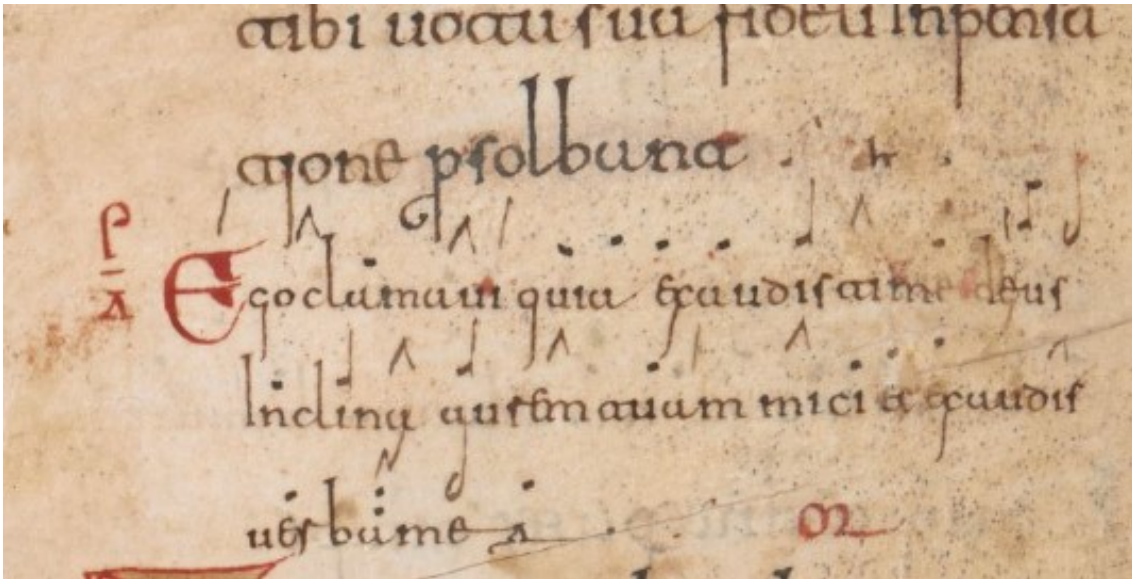 tibi uota sua fideli inpensa
tione psolbunt
Ego clamaui quia exaudisti me deus
Inclina aurem tuam mici et exaudis
uerba mea